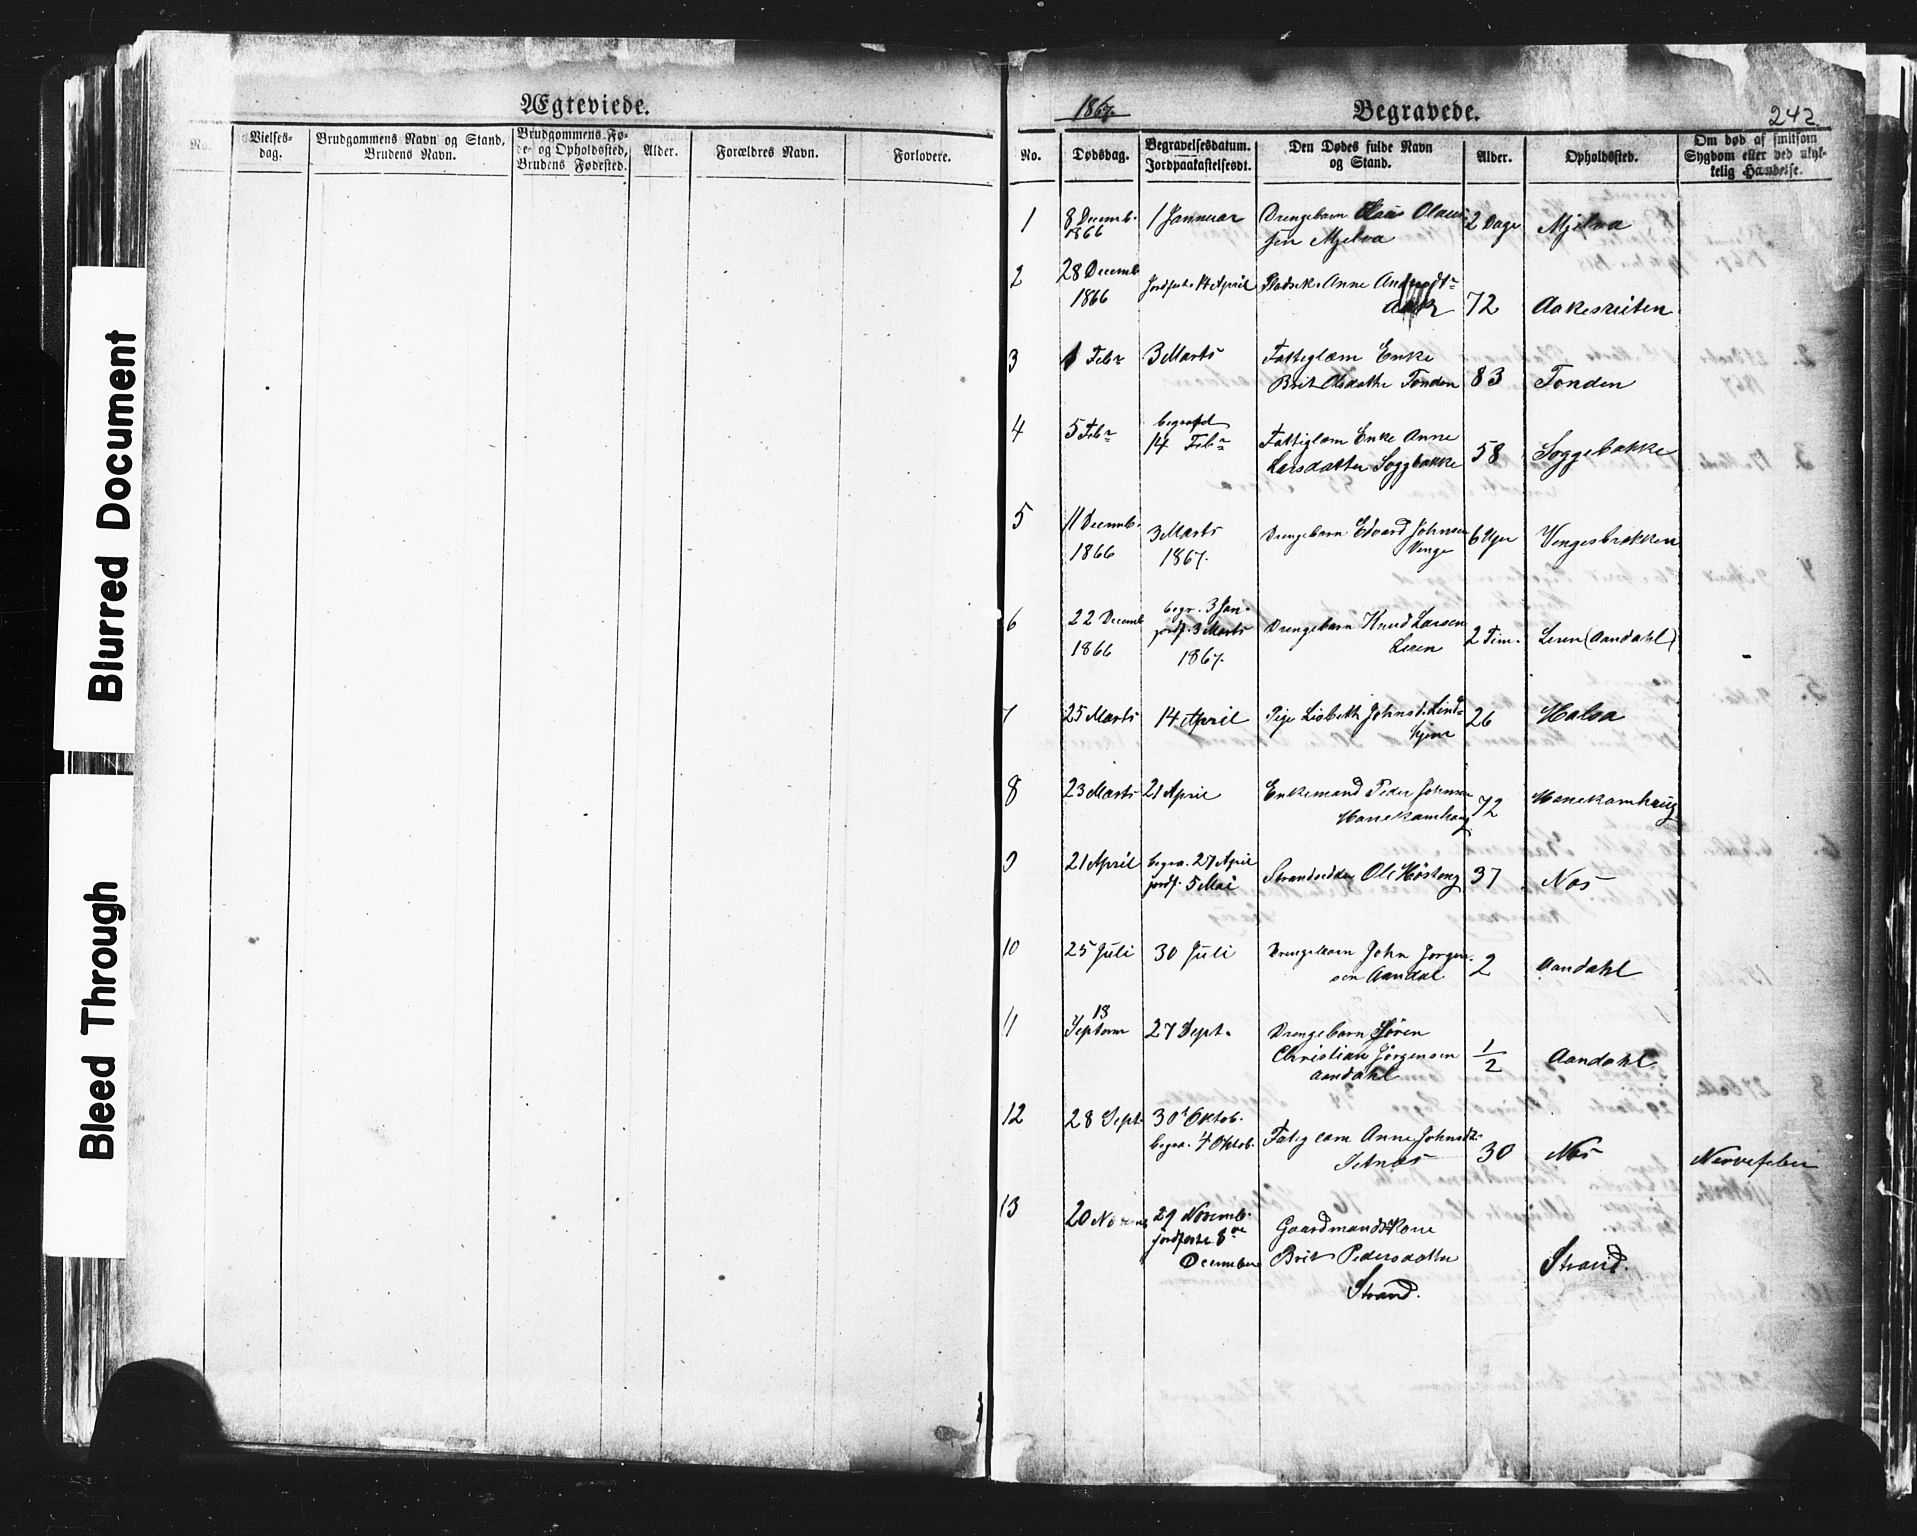 Blurred Document
Bleed Through
Ægteviede.
No.
Vielses-
dag.
Brudgommens Navn og Stand,
Brudens Navn.
Brudgommens Fø-
de- og Opholdssted,
Brudens Fødested.
Alder.
Forældres Navn.
Forlovere.
1867.
Begravede.
242
No.
Dødsdag.
Begravelsesdatum.
Jordpaakastelsesdt.
Den Dødes fulde Navn
og Stand.
Alder.
Opholdssted.
Om død af smitsom
Sygdom eller ved ulyk-
kelig Hændelse.
1 8 Decemb. 1 Januar Drengebarn Claus Olaus- 2 Dage Mjelva
1866 sen Mjelva
2 28 Decemb. Jordfæst. 14 April Anne
1866 72 Aakesreiten
3 1 Febr 3 Marts Fattiglem Enke
Brit Olsdatter Tonden 83 Tonden
4 5 Febr begravet
14 Febr Fattiglem Enke Anne
Larsdatter Soggbakke 58 Soggebakke
5 11 Decemb. 3 Marts Drengebarn Edvard Johnsen 6 Uger Vengesbakken
1866 1867. Venge
6 22 Decemb begr. 3 Jan.
jordf. 3 Marts Drengebarn Knud Larsen 2 Tim. Leren (Aandahl)
1866 1867. Leren
7 25 Marts 14 April Pige Lisbeth Johnsd. Lind- 26 Halsa
hjem
8 23 Marts 21 April Enkemand Peder Johnsen 72 Hanekamhaug
Hanekamhaug
9 21 April begra. 27 April
jordf. 5 Mai Strandsidder Ole Høsteng 37 Næs
10 25 Juli 30 Juli Drengebarn John Jørgen- 2 Aandahl
sen Aandal
11 13
Septem 27 Sept. Drengebarn Søren
Christian Jørgensen 1/2 Aandahl
Aandahl
12 28 Sept. 30t Oktob.
begra. 4 Oktob. Fatiglem Anne Johnsdt. 30 Næs Nervefeber
Setnæs
13 20 Novemb 29 Novemb.
jordfæste 8de Gaardmandskone
December Brit Pedersdatter Strand.
Strand.